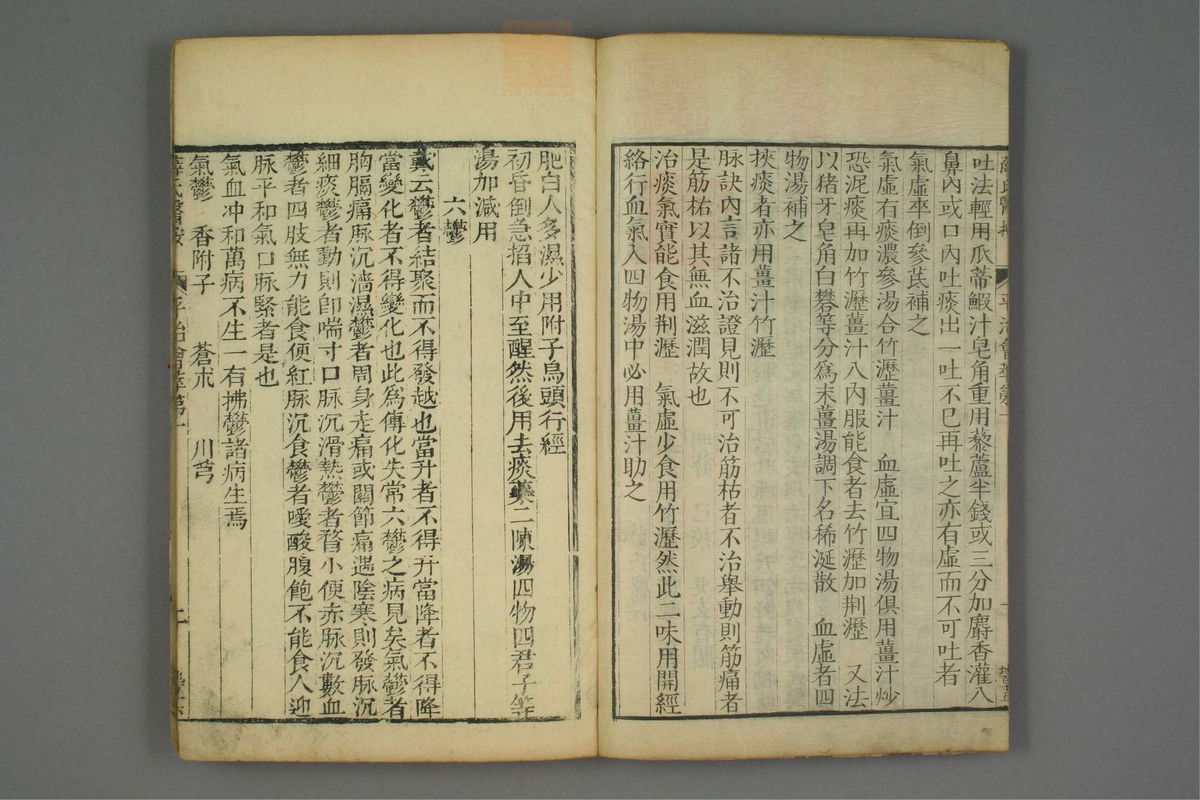 吐法輕用爪蒂鰕汁皂角重用藜蘆半錢或三分加麝香灌入
鼻內或口內吐痰出一吐不已再吐之亦有虛而不可吐者
氣虛卒倒參芪補之
氣虛有痰濃參湯合竹瀝薑汁　血虛宜四物湯俱用薑汁炒
恐泥痰再加竹瀝薑汁入內服能食者去竹瀝加荆瀝　又法
以猪牙皂角白礬等分爲末薑湯調下名稀涎散　血虛者四
物湯補之
挾痰者亦用薑汁竹瀝
脉訣內言諸不治證見則不可治筋枯者不治舉動則筋痛者
是筋枯以其無血滋潤故也
治痰氣實能食用荆瀝　氣虛少食用竹瀝然此二味用開經
絡行血氣入四物湯中必用薑汁助之
肥白人多濕少用附子烏頭行經
初昏倒急掐人中至醒然後用去痰藥二陳湯四物四君子等
湯加減用
六鬱
戴云鬱者結聚而不得發越也當升者不得升當降者不得降
當變化者不得變化也此爲傳化失常六鬱之病見矣氣鬱者
胸膈痛脉沉濇濕鬱者周身走痛或關節痛遇陰寒則發脉沉
細痰鬱者動則卽喘寸口脉沉滑熱鬱者瞀小便赤脉沉數血
鬱者四肢無力能食便紅脉沉食鬱者噯酸腹飽不能食人迎
脉平和氣口脉緊者是也
氣血冲和萬病不生一有拂鬱諸病生焉
氣鬱　香附子　蒼朮　川芎
薛氏醫按　平治會萃卷一　二